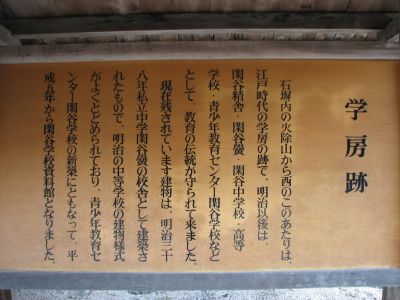 学房跡
石塀内の火除山から西のこのあたりは、
江戸時代の学房の跡で、明治以後は、
閑谷精舎・閑谷黌・閑谷中学校・高等
学校・青少年教育センター閑谷学校など
として、教育の伝統が守られて来ました。
現在残されています建物は、明治三十
八年私立中学閑谷黌の校舎として建築さ
れたもので、明治の中等学校の建物様式
がよくとどめられており、青少年教育セ
ンター閑谷学校の新築にともなって、平
成五年から閑谷学校資料館となりました。